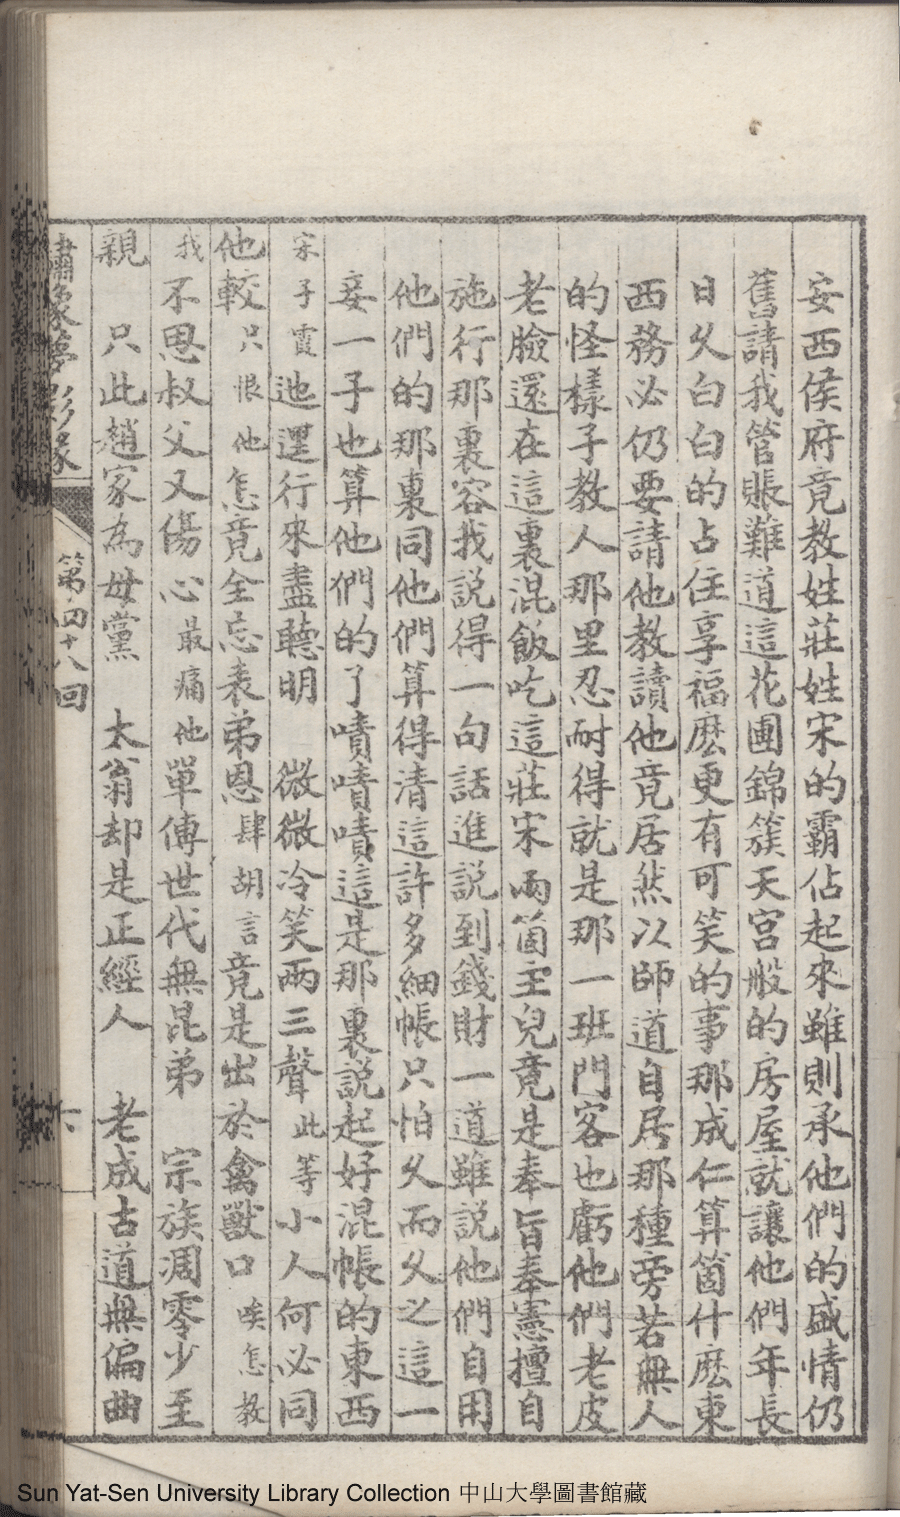 安西侯府竟教姓莊姓宋的霸佔起來雖則承他們的盛情仍
舊請我管賬難道這花團錦簇天宮般的房屋就讓他們年長
日久白白的占住享福麽更有可笑的事那成仁算箇什麽東
西務必仍要請他教讀他竟居然以師道自居那種旁若無人
的怪樣子教人那里忍耐得就是那一班門客也虧他們老皮
老臉還在這裏混飯吃這莊宋兩箇主兒竟是奉旨奉憲擅自
施行那裏容我説得一句話進説到錢財一道雖説他們自用
他們的那裏同他們算得清這許多細帳只怕久而久之這一
妾一子也算他們的了嘖嘖嘖這是那裏説起好混帳的東西
宋子霞迆邐行來盡聽明　微微冷笑兩三聲此等小人何必同
他較只恨他怎竟全忘表弟恩肆胡言竟是出於禽獸口唉怎教
我不思叔父又傷心最痛他單傳世代無昆弟　宗族凋零少至
親　只此趙家為母黨　太翁却是正經人　老成古道無偏曲
繡象夢影緣　第四十八回　六
Sun Yat-Sen University Library Collection 中山大學圖書館藏